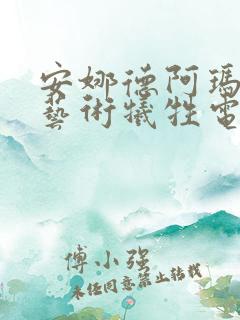 安娜德阿瑪
藝術犧牲電
傅小强
未经同意禁止转载